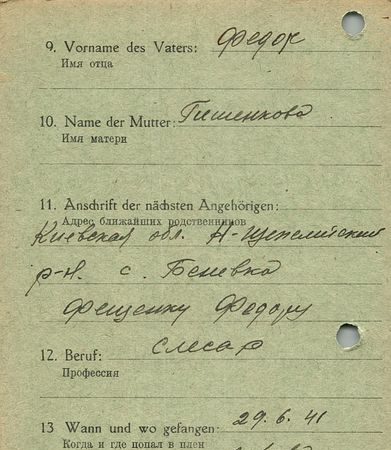 9. Vorname des Vaters: Федор
Имя отца
10. Name der Mutter: Тишенкова
Имя матери
11. Anschrift der nächsten Angehörigen:
Адрес ближайших родственников
Киевская обл.
р-н. с. Беневка
Фещенку Федору
12. Beruf: слесар
Профессия
13 Wann und wo gefangen: 29.6.41
Когда и где попал в плен